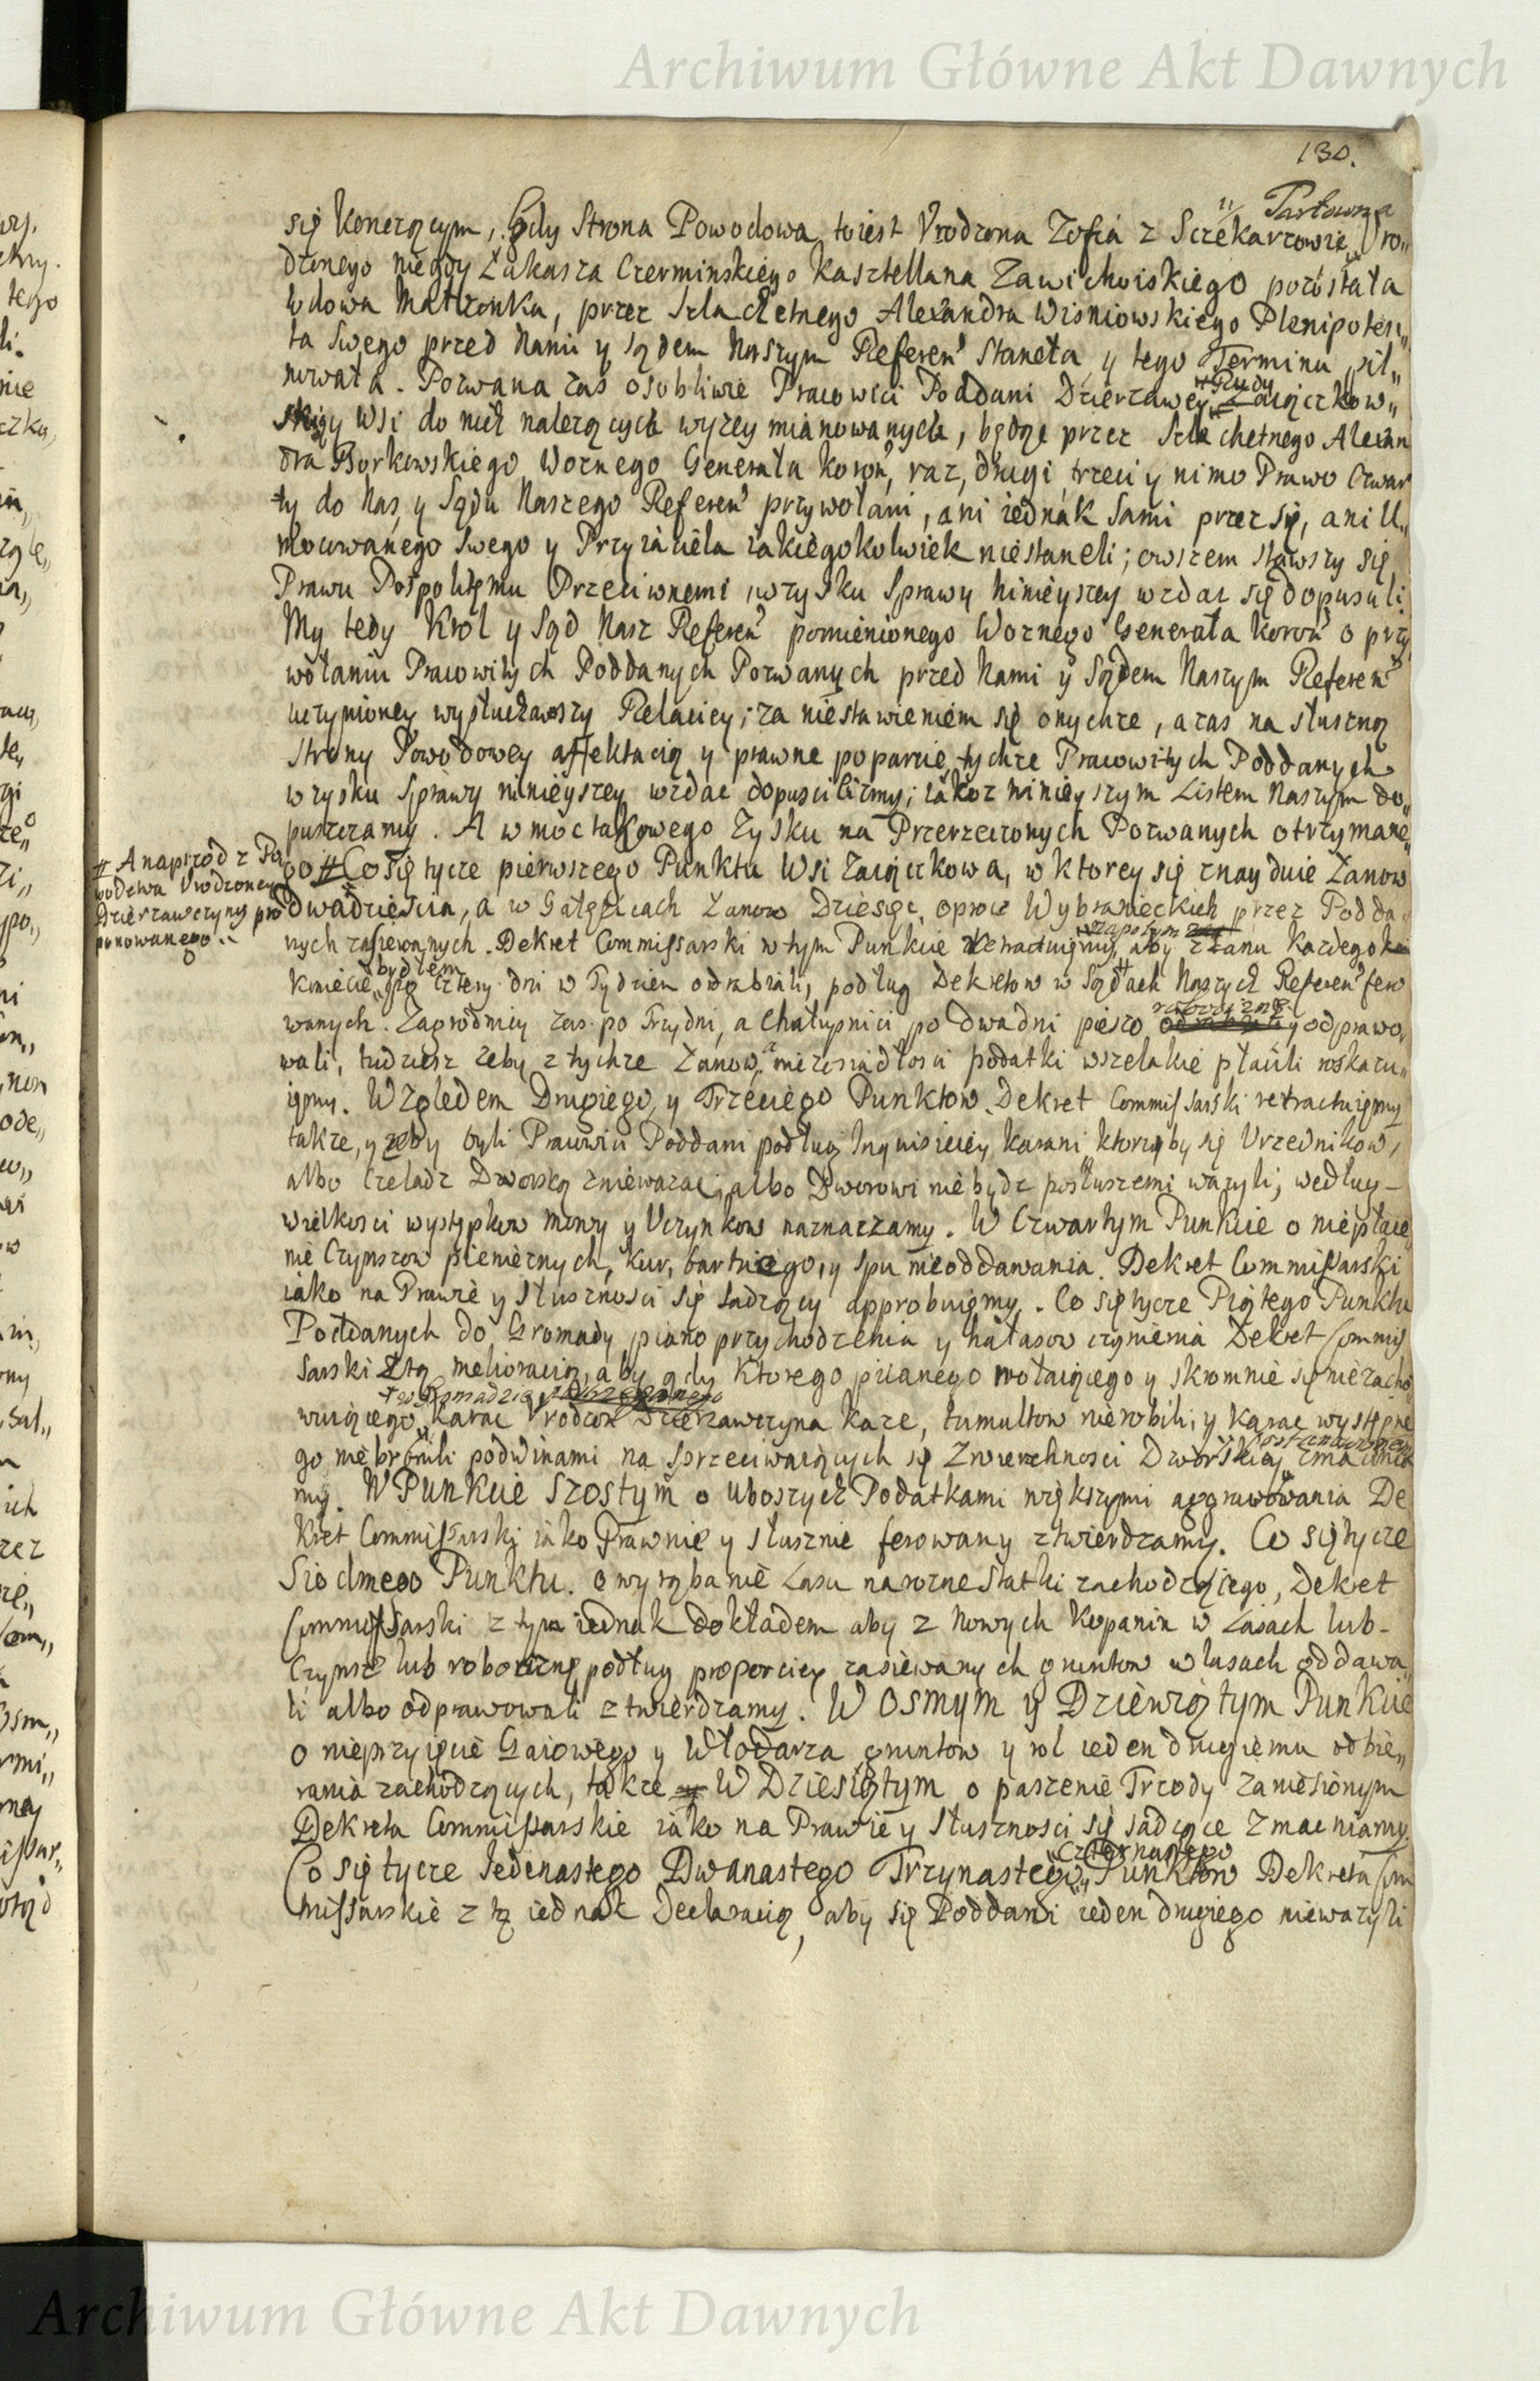 Archiwum Główne Akt Dawnych
130.
Tarłowna
się konczącym, Gdy Strona Powodowa, toiest Vrodzona Zofia z Sczekarzowic Vro„
dzonego niegdy Łukasza Czerminskiego Kasztellana Zawichoiskiego pozostała
Wdowa Matronka, przez Szlachetnego Alexandra Wisniowskiego Plenipoten„
ta Swego przed Nami y Sądem Naszym Referen stanęła, y tego Terminu pil„
nowała. Pozwana zas osobliwie Pracowici Poddani Dzierzawey Rudy Zaiączkow„
skiey Wsi do nich nalezących wyzey mianowanych, będąc przez Szlachetnego Alexan
dra Borkowskiego Woznego Generała Koron, raz, drugi, trzeci y nimo Prawo Czwar
ty do Nas, y Sądu Naszego Referen przywołani, ani iednak sami przez się, ani U„
mocowanego Swego y Przyiaciela iakiegokolwiek niestaneli; owszem stawszy się
Prawu Pospolitemu Przeciwnemi wzysku Sprawy Ninieyszey wzdac się dopuscili
My tedy Krol y Sąd Nasz Referen pomienionego Woznego Generała Koron o przy
wołaniu Pracowitych Poddanych Pozwanych przed Nami y Sądem Naszym Referen
uczynioney wysłuchawszy Relaciey; za niestawieniem się onychze, a zas na słuszną
Strony Powodowey affektacią y prawne poparcie, tychze Pracowitych Poddanych
w zysku Sprawy ninieyszey wzdac dopuscilizmy; iakoz ninieyszym Listem Naszym do„
puszczamy. A w moc takowego Zysku na Przerzeczonych Pozwanych otrzymane„
# A naprzod z Po
wodstwa Vrodzoney
Dzierzawczyny pro
ponowanego..
go # Co się tycze pierwszego Punktu Wsi Zaiączkowa, w ktorey się znayduie Łanow
dwadziescia, a w Gałęzicach Łanow Dziesęc, oprocz Wybranieckich przez Podda„
nych zasiewanych. Dekret Commissarski w tym Punkcie retractuięmy, zapotym aby z łanu kazdego
Kmiecie bydłem po cztery dni w Tydzien odrabiali, podług Dekretow w Sądach Naszych Referen fero
wanych. Zagrodnicy zas po Trzy dni, a Chałupnici po Dwa dni pieszo robociznę y odprawo
wali, tudziesz zeby z tychze Łanow, osiadłosci podatki wszelakie płacili roskazu„
ięmy. Względem Drugiego, y Trzeciego Punktow, Dekret Commissarski retractuięmy
takze, y zeby byli Pracowici Poddani podług Inquisiciey karani, ktorzy by się Vrzednikow,
albo Czeladz Dworską zniewazac, albo Dworowi niebydz posłuszemi wazyli, według –
wielkosci występkow mowy y Vczynkow naznaczamy. W Czwartym Punkcie o niepłace„
nie Czynszow pienieznych, kur, bartnego, y spu nieoddawania. Dekret Commissarski
iako na Prawie y Słusznosci się sadzący approbuięmy. Co się tycze Piątego Punktu
Poddanych do Gromady piano przychodzenia y hałasow czynienia Dekret Commis
sarski z tą melioracią, aby gdy ktorego piianego wołaiącego y skromnie się niezacho
wuiącego w Gromadzie karac Vrodzona Dzierzawczyna kaze, tumultow nierobili, y karac występne
go niebronili podwinami na Sprzeciwaiących się Zwierzchnosci Dworskiey postanowionemi zmacnia
my. W Punkcie Szostym o uboszych Podatkami większymi aggrawowania De
kret Commissarski iako Prawnie y słusznie ferowany ztwierdzamy. Co się tycze
Siodmego Punktu. o wyrąbanie Lasu narozne statki zachodzącego, Dekret
Commissarski z tym iednak dokładem aby z Nowych Kopanin w Lasach lub –
Czynsz lub robociznę podług proporciey zasiewanych gruntow w lasach oddawa„
li albo odprawowali ztwierdzamy. W Osmym y Dziewiątym Punkcie
o nieprzyięcie Gaiowego y Włodarza, gruntow y rol ieden drugiemu odbie„
rania zachodzących, takze W Dziesiątym o paszenie Trzody zaniesionym
Dekreta Commissarskie iako na Prawie y Słusznosci się sadzące Zmacniamy.
Co się tycze Iedenastego Dwanastego Trzynastego, Czternastego Punktow Dekreta Com
missarskie z tą iednak Declaracią, aby się Poddani ieden drugiego niewazyli
Archiwum Główne Akt Dawnych